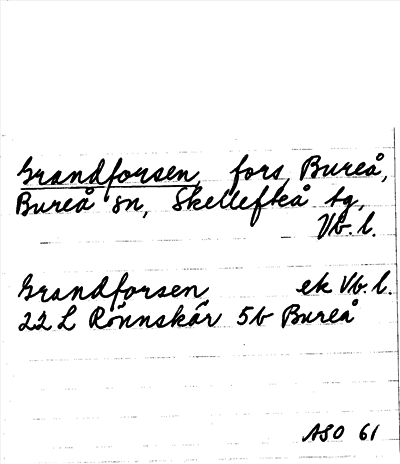 Grandforsen, fors, Bureå,
Bureå sn, Skellefteå tg,
Vb. l.
Grandforsen, ek Vb. l.
22 L Rönnskär 5b Bureå
ASO 61